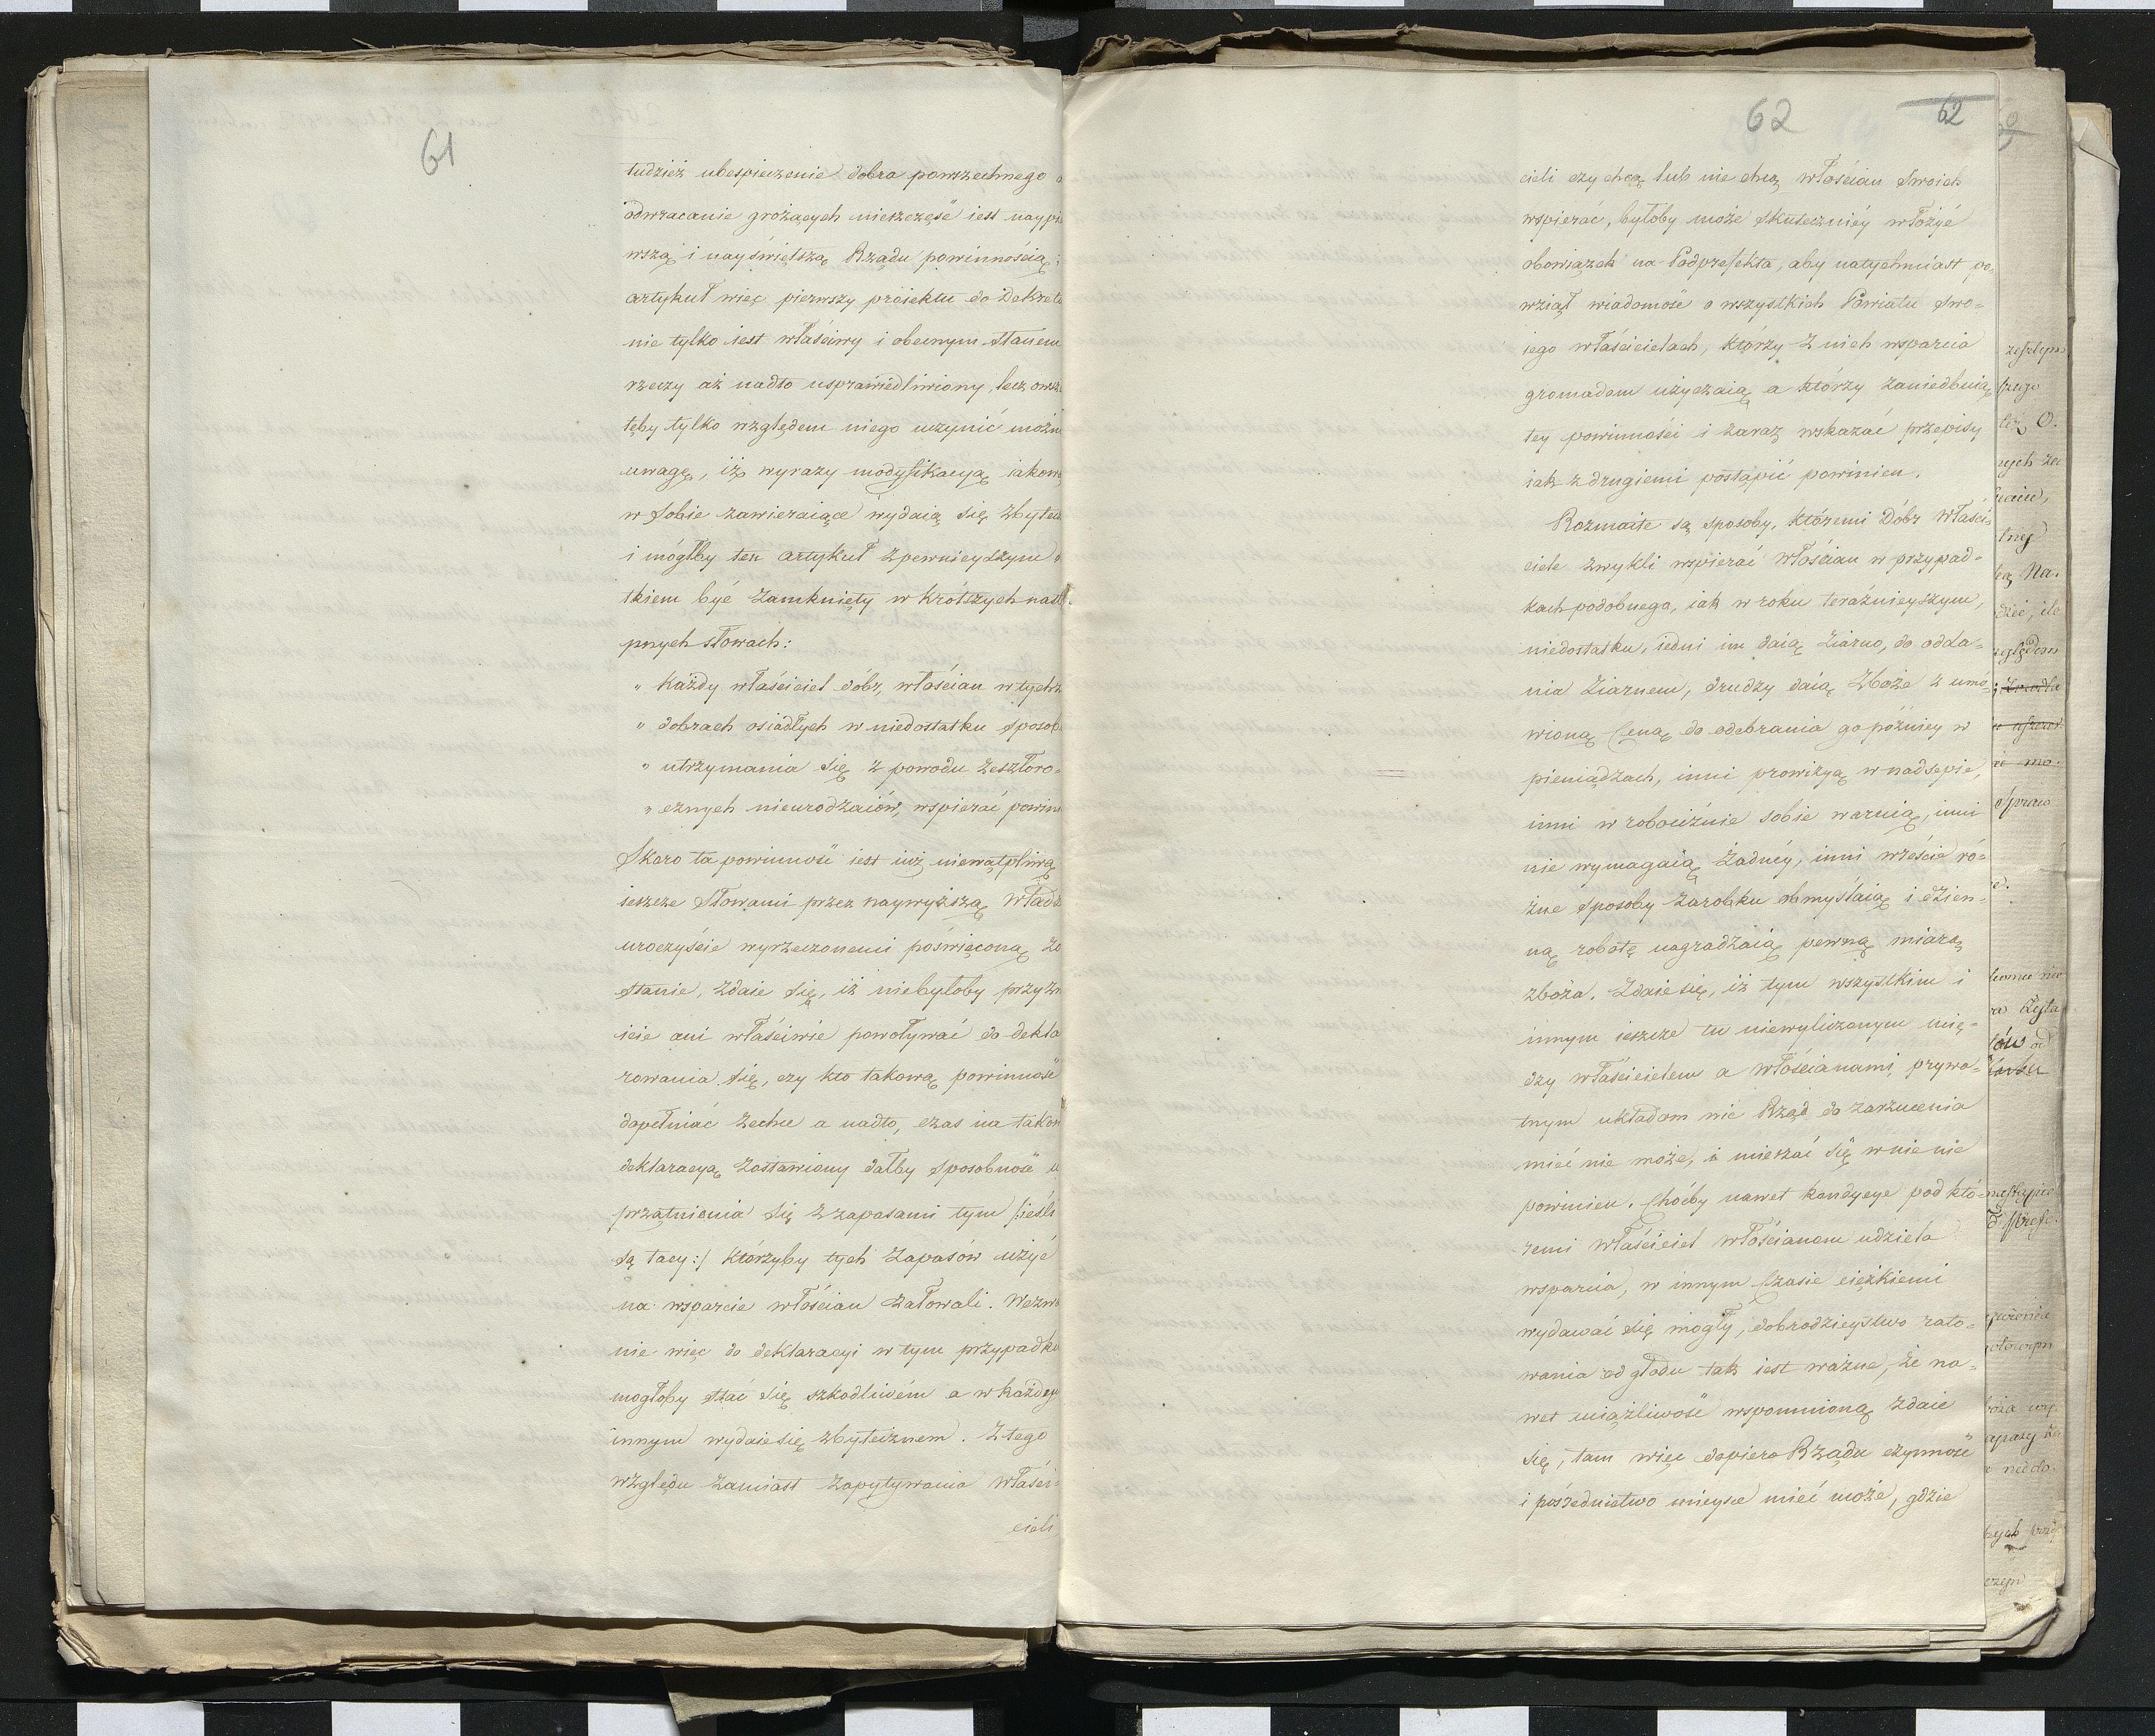 61
tudzież ubespieczenie dobra powszechnego
odwracanie grożących nieszczęść iest naypie
wszą i nayświętszą Rządu powinnością;
artykuł więc pierwszy proiektu do Dekretu
nie tylko iest właściwy i obecnym stanem
rzeczy aż nadto usprawiedliwiony, lecz owsze
tęby tylko względem niego uczynić możn
uwagę, iż wyrazy modyfikacyą iakową
w sobie zawieraiące wydaią się zbytecz
i mógłby ten artykuł z pewnieyszym
tkiem być zamknięty w krótszych nastę
pnych słowach:
„ Każdy właściciel dóbr, włościan w tychż
„ dobrach osiadłych w niedostatku sposob
„ utrzymania się z powodu zeszłoro-
„ cznych nieurodzaiów, wspierać powin
Skoro ta powinność iest iuż niewątpliwą
ieszcze słowami przez naywyższą Władz
uroczyście wyrzeczonemi poświęconą zo
stanie, zdaie się, iż niebyłoby przyzw
icie ani właściwie powoływać do dekla
rowania się, czy kto takową powinność
dopełniać zechce a nadto, czas na takow
deklaracyą zostawiony dałby sposobność u
przątnienia się z zapasami tym /:ieśli
są tacy:/ którzyby tych zapasów użyć
na wsparcie włościan żałowali. Wezwa
nie więc do deklaracyi w tym przypadku
mogłoby stać się szkodliwém a w każdym
innym wydaie się zbyteiznem. Z tego
względu zamiast zapytywania właści-
cieli
62
62
cieli czy chcą lub nie chcą włościan swoich
wspierać, byłoby może skuteczniéy włożyć
obowiązek na Podprefekta, aby natychmiast po-
wziął wiadomość o wszystkich Powiatu swo-
iego właścicielach, którzy z nich wsparcia
gromadom użyczaią a którzy zaniedbuią
tey powinności i zaraz wskazać przepisy
iak z drugiemi postąpić powinien.
Rozmaite są sposoby, któremi Dóbr Właści-
ciele zwykli wspierać włościan w przypad-
kach podobnego, iak w roku teraźnieyszym,
niedostatku, iedni im daią ziarno, do odda-
nia ziarnem, drudzy daią zboże z umó-
wioną Ceną do odebrania go późniey w
pieniądzach, inni prowizyą w nadsepie,
inni w robociźnie sobie waruią, inni
nie wymagaią żadnéy, inni wreście ró-
żne sposoby zarobku obmyślaią i dzien-
ną robotę nagradzaią pewną miarą
zboża. Zdaie się, iż tym wszystkim i
innym ieszcze tu niewyliczonym mię-
dzy właścicielem a włościanami prywa-
tnym układom nic Rząd do zarzucenia
mieć nie może, i mieszać się w nie nie
powinien. Choćby nawet kondycye pod któ-
remi właściciel włościanom udziela
wsparcia, w innym Czasie ciężkiemi
wydawać się mogły, dobrodzieystwo rato-
wania od głodu tak iest ważne, że na-
wet uciążliwość wspomnioną zdaie
się, tam więc dopiero Rządu czynność
i pośrednictwo mieysce mieć może, gdzie